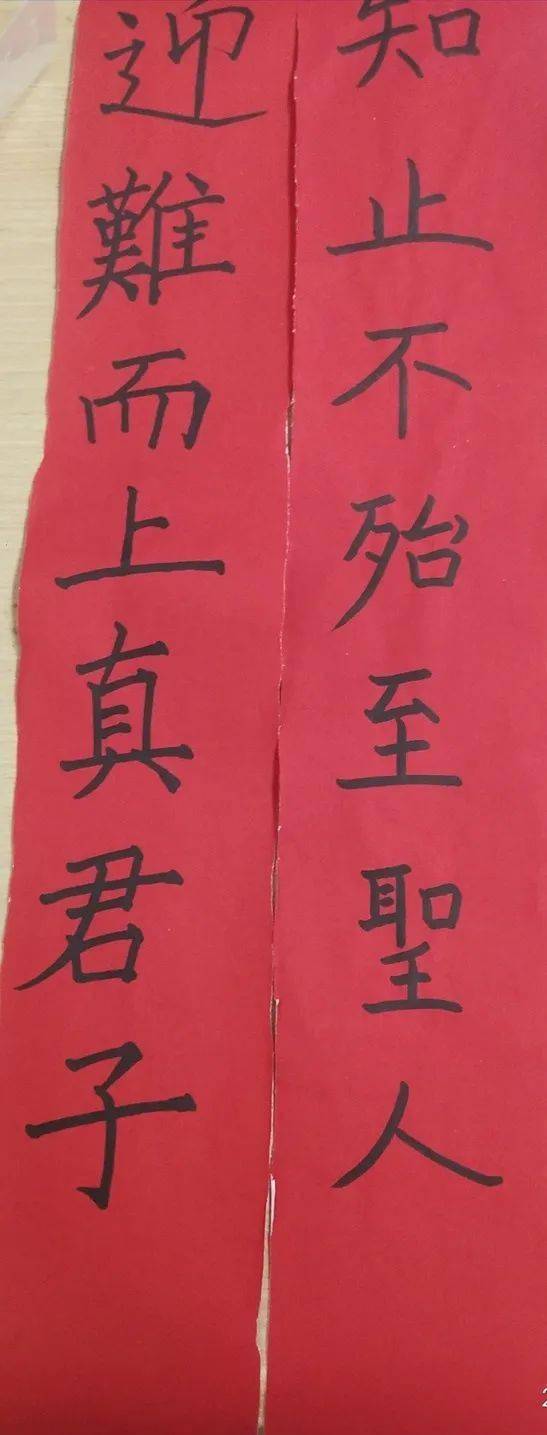 知止不殆至聖人
迎難而上真君子